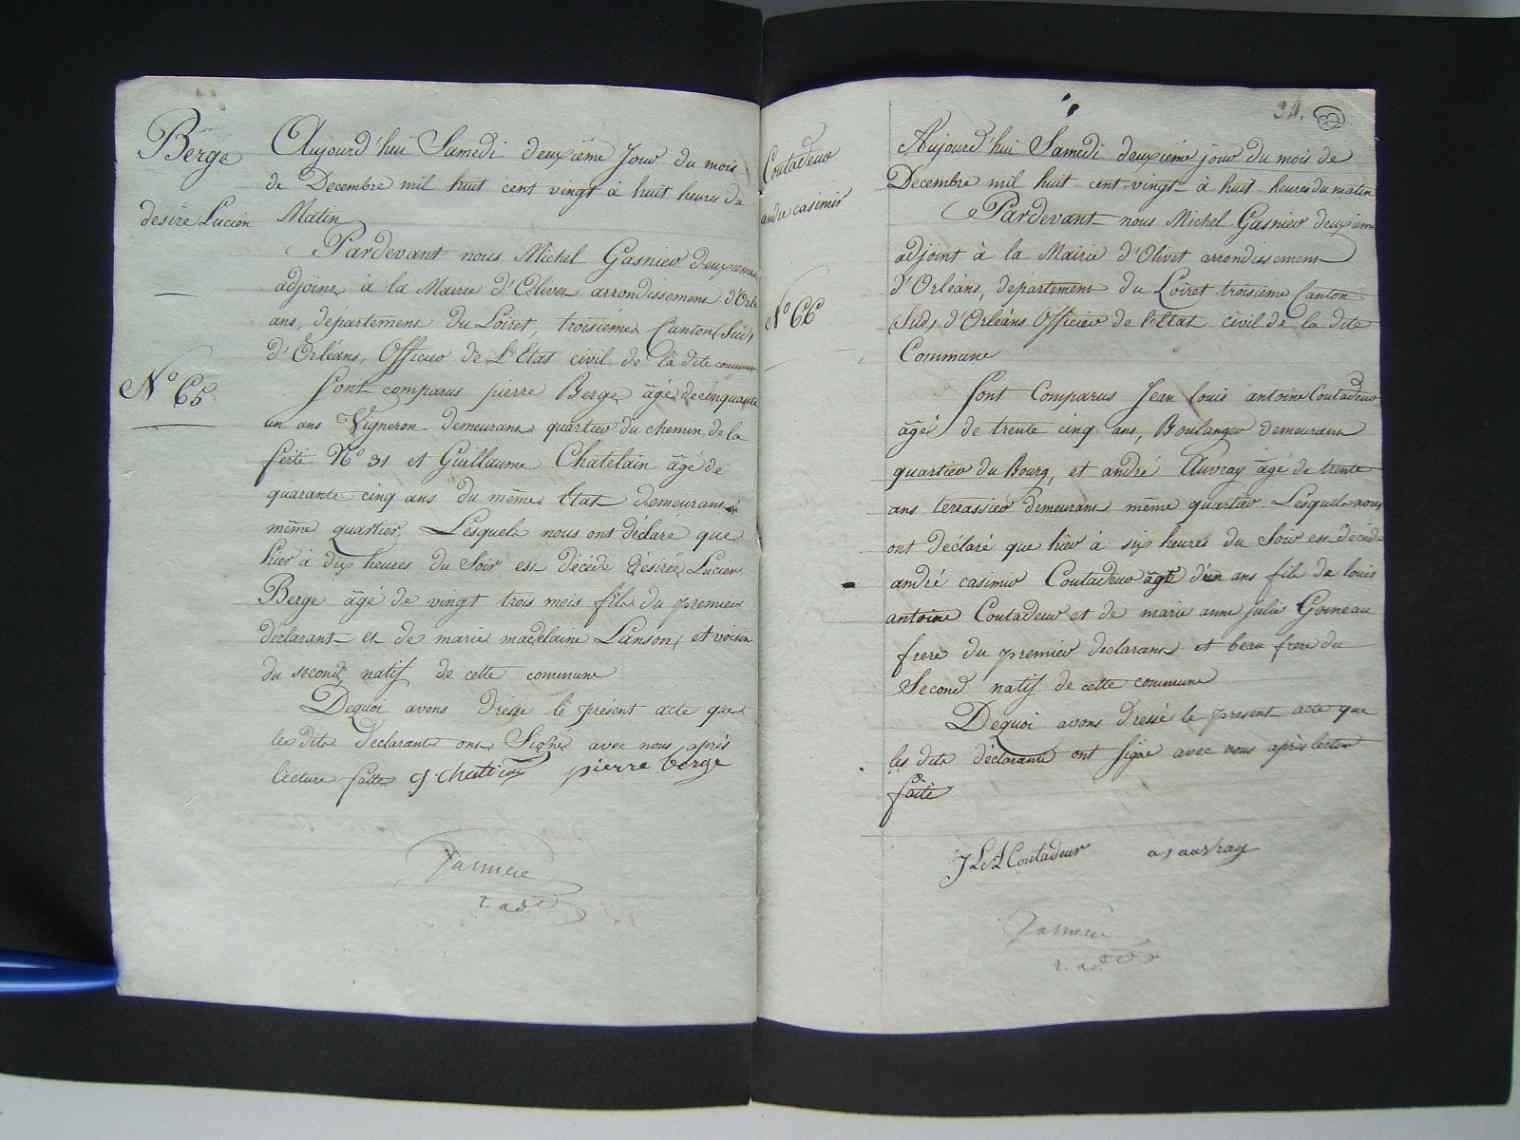 Berge
desiré Lucien
N° 65
Aujourd'hui Samedi deuxième Jour du mois
de Decembre mil huit cent vingt à huit heures du
Matin
Pardevant nous Michel Gasnier deuxieme
adjoint à la Mairie d'Olivet arrondissement d'Orlé
ans, departement du Loiret, troisième Canton (Sud)
d'Orléans, Officier de L'Etat civil de la dite commune
Sont comparus pierre Berge âgé de cinquante
un ans Vigneron demeurant quartier du chemin de la
ferté N° 31 et Guillaume Chatelain âgé de
quarante cinq ans du même Etat demeurant
même quartier, Lesquels nous ont déclaré que
hier à dix heures du Soir est décédé désiré Lucien
Berge âgé de vingt trois mois fils du premier
declarant et de marie madelaine Lanson, et voisin
du second, natif de cette commune
Dequoi avons dressé le présent acte que
les dits declarants ont Signé avec nous après
lecture faite g chatelain pierre berge
2. adt
34.
Coutadeur
andré casimir
N° 66
Aujourd'hui Samedi deuxième jour du mois de
Decembre mil huit cent vingt à huit heures du matin
Pardevant nous Michel Gasnier deuxième
adjoint à la Mairie d'Olivet arrondissement
d'Orléans, departement du Loiret troisième Canton
(Sud) d'Orléans Officier de l'Etat civil de la dite
Commune
Sont Comparus Jean Louis antoine Coutadeur
âgé de trente cinq ans, Boulanger demeurant
quartier du Bourg, et andré Auvray âgé de trente
ans terrassier demeurant même quartier Lesquels nous
ont déclaré que hier à six heures du Soir est décédé
andré casimir Coutadeur âgé d'un ans fils de louis
antoine Coutadeur et de marie anne julie Goineau
frere du premier declarant et beau frere du
Second natif de cette commune
Dequoi avons dressé le present acte que
les dits déclarants ont signé avec nous après lecture
faite
JLA Coutadeur a j auvray
2. adt